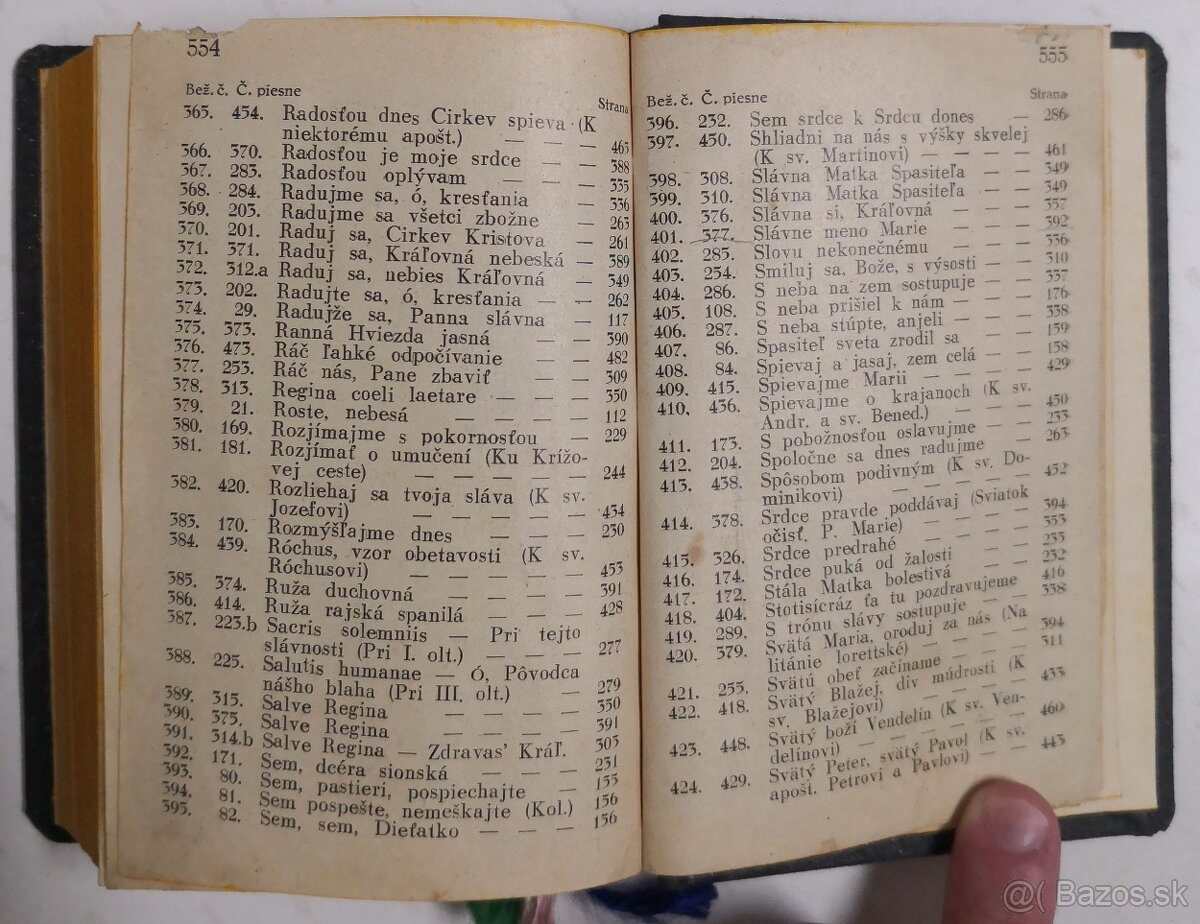 554
Bež. č. Č. piesne Strana
365. 454. Radosťou dnes Cirkev spieva (K
niektorému apošt.) — — — 465
366. 370. Radosťou je moje srdce — — 388
367. 283. Radosťou oplývam — — — 335
368. 284. Radujme sa, ó, kresťania — — 336
369. 203. Radujme sa všetci zbožne — 263
370. 201. Raduj sa, Cirkev Kristova — 261
371. 371. Raduj sa, Kráľovná nebeská — 389
372. 312.a Raduj sa, nebies Kráľovná — 349
373. 202. Radujte sa, ó, kresťania — — 262
374. 29. Radujže sa, Panna slávna — 117
375. 373. Ranná Hviezda jasná — — 390
376. 473. Ráč ľahké odpočívanie — — 482
377. 253. Ráč nás, Pane zbaviť — — 309
378. 313. Regina coeli laetare — — — 350
379. 21. Roste, nebesá — — — — 112
380. 169. Rozjímajme s pokornosťou — 229
381. 181. Rozjímať o umučení (Ku Krížo-
vej ceste) — — — — — 244
382. 420. Rozliehaj sa tvoja sláva (K sv.
Jozefovi) — — — — — 434
383. 170. Rozmýšľajme dnes — — — 230
384. 439. Róchus, vzor obetavosti (K sv.
Róchusovi) — — — — — 453
385. 374. Ruža duchovná — — — — 391
386. 414. Ruža rajská spanilá — — — 428
387. 223.b Sacris solemniis — Pri tejto
slávnosti (Pri I. olt.) — — — 277
388. 225. Salutis humanae — Ó, Pôvodca
nášho blaha (Pri III. olt.) — 279
389. 315. Salve Regina — — — — 350
390. 375. Salve Regina — — — — 391
391. 314.b Salve Regina — Zdravas' Kráľ. 303
392. 171. Sem, dcéra sionská — — — 231
393. 80. Sem, pastieri, pospiechajte — 155
394. 81. Sem pospešte, nemeškajte (Kol.) 156
395. 82. Sem, sem, Dieťatko — — — 156
555
Bež. č. Č. piesne Strana
396. 232. Sem srdce k Srdcu dones — 286
397. 450. Shliadni na nás s výšky skvelej
(K sv. Martinovi) — — — — 461
398. 308. Slávna Matka Spasiteľa — — 349
399. 310. Slávna Matka Spasiteľa — — 349
400. 376. Slávna si, Kráľovná — — — 337
401. 377. Slávne meno Marie — — — 392
402. 285. Slovu nekonečnému — — — 336
403. 254. Smiluj sa, Bože, s výsosti — — 310
404. 286. S neba na zem sostupuje — — 337
405. 108. S neba prišiel k nám — — — 176
406. 287. S neba stúpte, anjeli — — — 338
407. 86. Spasiteľ sveta zrodil sa — — 159
408. 84. Spievaj a jasaj, zem celá — — 158
409. 415. Spievajme Marii — — — — 429
410. 436. Spievajme o krajanoch (K sv.
Andr. a sv. Bened.) — — — 450
411. 173. S pobožnosťou oslavujme — — 233
412. 204. Spoločne sa dnes radujme — 263
413. 438. Spôsobom podivným (K sv. Do-
minikovi) — — — — 452
414. 378. Srdce pravde poddávaj (Sviatok
očisť. P. Marie) — — — — 394
415. 326. Srdce predrahé — — — — 353
416. 174. Srdce puká od žalosti — — 233
417. 172. Stála Matka bolestivá — — 232
418. 404. Stotisíckráz ťa tu pozdravujeme 416
419. 289. S trónu slávy sostupuje — — 338
420. 379. Svätá Maria, oroduj za nás (Na
litánie lorettské) — — — — 394
421. 255. Svätú obeť začíname — — — 311
422. 418. Svätý Blažej, div múdrosti (K
sv. Blažejovi) — — — — 433
423. 448. Svätý boží Vendelín (K sv. Ven-
delínovi) — — — — 460
424. 429. Svätý Peter, svätý Pavol (K sv.
apošt. Petrovi a Pavlovi) — — 443
@( Bazos.sk